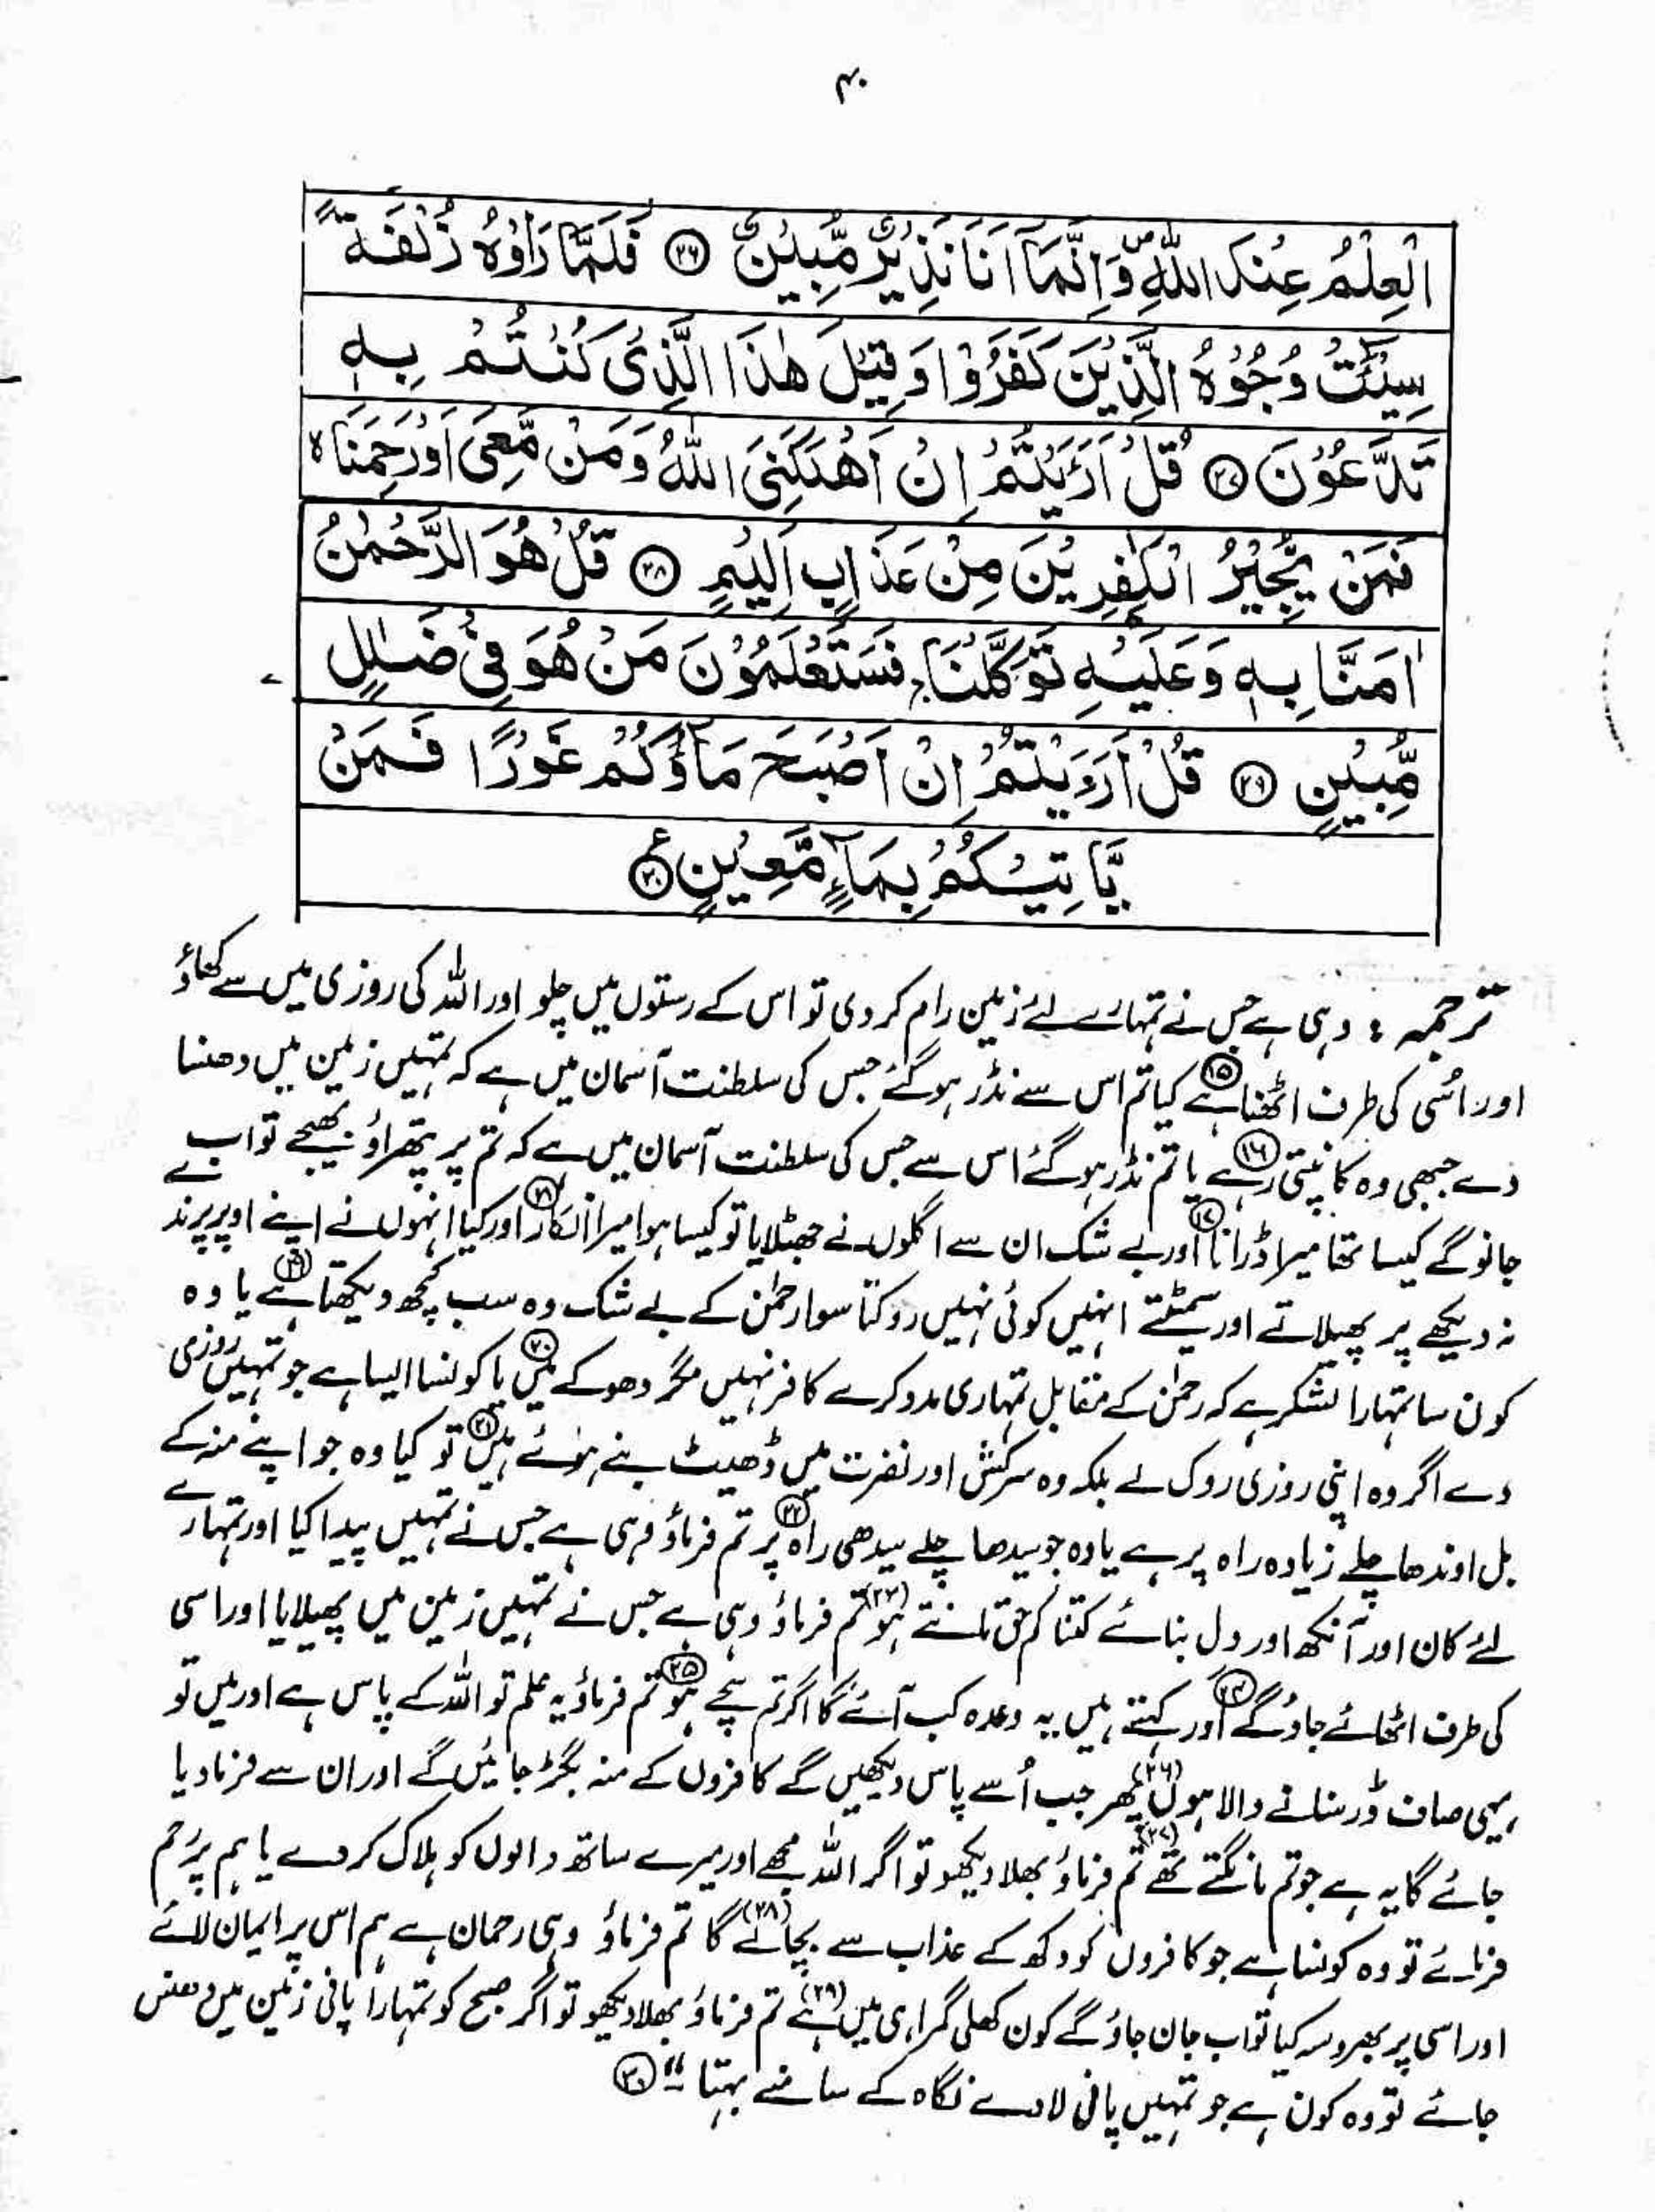 ۴۰
الْعِلْمُ عِنْدَ اللّٰهِ ۪ وَاِنَّمَاۤ اَنَا نَذِیْرٌ مُّبِیْنٌ ۲۶ فَلَمَّا رَاَوْهُ زُلْفَةً
سِیْٓئَتْ وُجُوْهُ الَّذِیْنَ كَفَرُوْا وَقِیْلَ هٰذَا الَّذِیْ كُنْتُمْ بِهٖ
تَدَّعُوْنَ ۲۷ قُلْ اَرَءَیْتُمْ اِنْ اَهْلَكَنِیَ اللّٰهُ وَمَنْ مَّعِیَ اَوْ رَحِمَنَا ہ
فَمَنْ یُّجِیْرُ الْكٰفِرِیْنَ مِنْ عَذَابٍ اَلِیْمٍ ۲۸ قُلْ هُوَ الرَّحْمٰنُ
اٰمَنَّا بِهٖ وَعَلَیْهِ تَوَكَّلْنَا ۚ فَسَتَعْلَمُوْنَ مَنْ هُوَ فِیْ ضَلٰلٍ
مُّبِیْنٍ ۲۹ قُلْ اَرَءَیْتُمْ اِنْ اَصْبَحَ مَآؤُكُمْ غَوْرًا فَمَنْ
یَّاْتِیْكُمْ بِمَآءٍ مَّعِیْنٍ ۳۰ ع
ترجمہ : وہی ہے جس نے تمہارے لئے زمین رام کر دی تو اس کے رستوں میں چلو اور اللہ کی روزی میں سے کھاؤ
اور اُسی کی طرف اٹھنا ہے ۱۵ کیا تم اس سے نڈر ہو گئے جس کی سلطنت آسمان میں ہے کہ تمہیں زمین میں دھنسا
دے جبھی وہ کانپتی رہے ۱۶ یا تم نڈر ہو گئے اس سے جس کی سلطنت آسمان میں ہے کہ تم پر پتھراؤ بھیجے تو اب
جانو گے کیسا تھا میرا ڈرانا ۱۷ اور بے شک ان سے اگلوں نے جھٹلایا تو کیسا ہوا میرا انکار ۱۸ اور کیا انہوں نے اپنے اوپر پرند
نہ دیکھے پر پھیلاتے اور سمٹتے انہیں کوئی نہیں روکتا سوا رحمٰن کے بے شک وہ سب کچھ دیکھتا ہے ۱۹ یا وہ
کون سا تمہارا لشکر ہے کہ رحمٰن کے مقابل تمہاری مدد کرے کافر نہیں مگر دھوکے میں ۲۰ یا کونسا ایسا ہے جو تمہیں روزی
دے اگر وہ اپنی روزی روک لے بلکہ وہ سرکش اور نفرت میں ڈھیٹ بنے ہوئے ہیں ۲۱ تو کیا وہ جو اپنے منہ کے
بل اوندھا چلے زیادہ راہ پر ہے یا وہ جو سیدھا چلے سیدھی راہ پر ۲۲ تم فرماؤ وہی ہے جس نے تمہیں پیدا کیا اور تمہارے
لئے کان اور آنکھ اور دل بنائے کتنا کم حق مانتے ہو (۲۳) تم فرماؤ وہی ہے جس نے تمہیں زمین میں پھیلایا اور اسی
کی طرف اٹھائے جاؤ گے ۲۴ اور کہتے ہیں یہ وعدہ کب آئے گا اگر تم سچے ہو ۲۵ تم فرماؤ یہ علم تو اللہ کے پاس ہے اور میں تو
یہی صاف ڈر سنانے والا ہوں (۲۶) پھر جب اُسے پاس دیکھیں گے کافروں کے منہ بگڑ جائیں گے اور ان سے فرما دیا
جائے گا یہ ہے جو تم مانگتے تھے (۲۷) تم فرماؤ بھلا دیکھو تو اگر اللہ مجھے اور میرے ساتھ والوں کو ہلاک کر دے یا ہم پر رحم
فرمائے تو وہ کونسا ہے جو کافروں کو دکھ کے عذاب سے بچا لے گا (۲۸) تم فرماؤ وہی رحمان ہے ہم اس پر ایمان لائے
اور اسی پر بھروسہ کیا تو اب جان جاؤ گے کون کھلی گمراہی میں ہے (۲۹) تم فرماؤ بھلا دیکھو تو اگر صبح کو تمہارا پانی زمین میں دھنس
جائے تو وہ کون ہے جو تمہیں پانی لادے نگاہ کے سامنے بہتا ۔" ۳۰